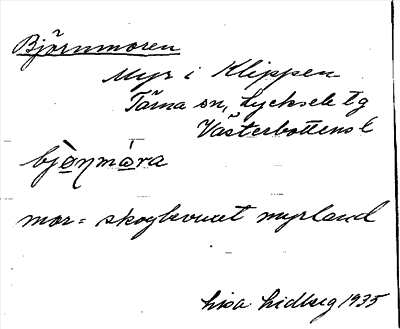 Björnmoren
Myr i Klippen
Tärna sn, Lycksele tg
Västerbottens l
bjǫ̀ṇmǫ̀ra
mor = skogbevuxet myrland
Lisa Lidberg 1935